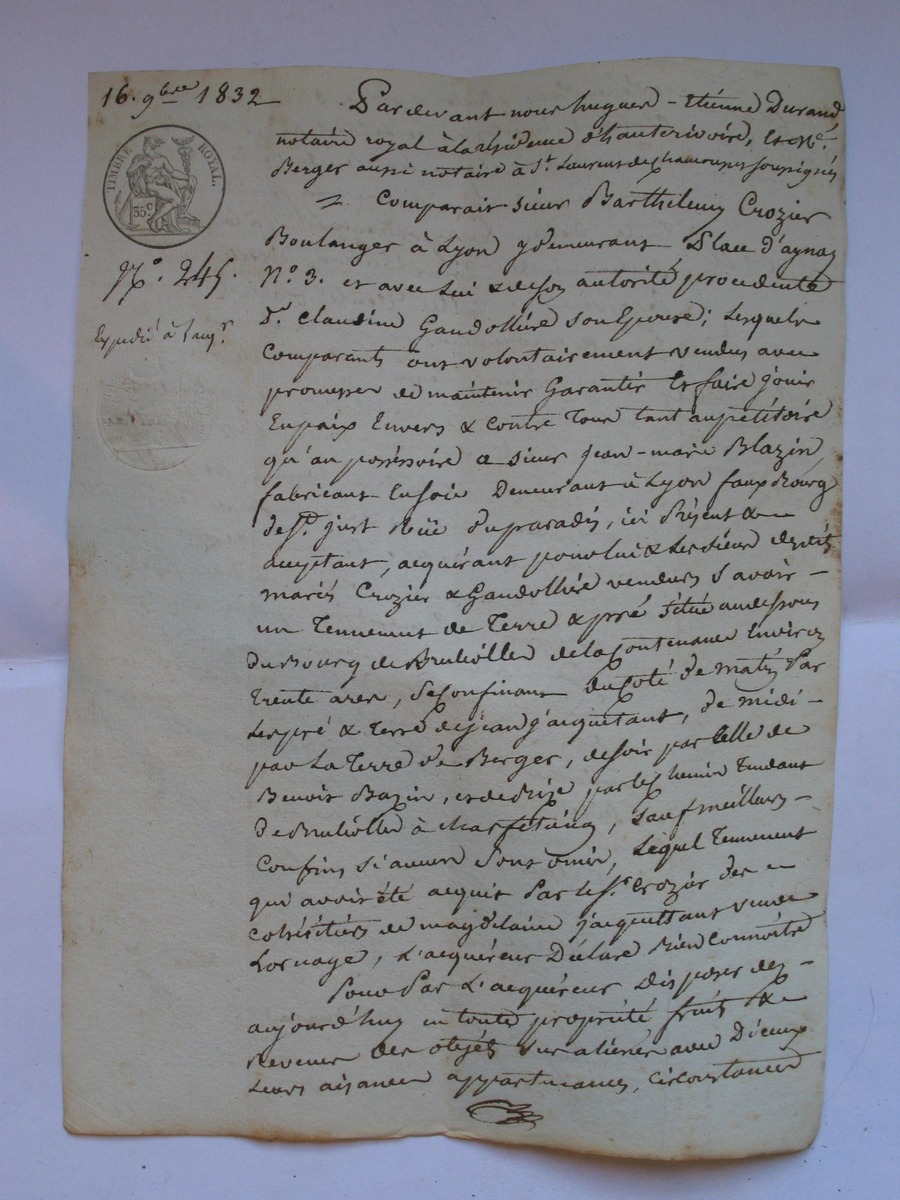 16. 9bre 1832
TIMBRE ROYAL.
35c
No. 245.
Expédié à l'aqr.
Pardevant nous hugues-Etienne Durand
notaire royal à la résidence d'hauterivoire, et Me.
Berger aussi notaire à St. Laurent de chamousset soussignés
Comparait sieur Barthelemy Crozier
Boulanger à Lyon y demeurant Place d'aynay
No. 3. et avec Lui & de son autorité procedente
De. Claudine Gandollière son Epouse; Lesquels
Comparants ont volontairement vendus avec
promesse de maintenir Garantir et faire jouir
En paix Envers & contre Tous tant au pétitoire
qu'au possessoire a sieur Jean-marie Blazin,
fabricant En soie Demeurant à Lyon faux Bourg
de St. just Rüe du paradis, ici Présent &
acceptant, acquérant pour lui & Les siens des dits
mariés Crozier & Gandollière vendeurs Savoir
un Tennement de Terre & pré situé au dessous
Du Bourg de Brulliolles de la Contenance Environ
trente ares, Se Confinant Du Coté de matin Par
Les pré & terre de jean jacquetant, de midi
par La Terre de Berger, de soir par Celle de
Benoit Bazin, et de Bize par le chemin Tendant
de Brulliolles à, Sauf meilleurs
Confins Si aucun Sont omis, Lequel Tennement
qui avoit été acquis Par le Sr. Crozier des
cohéritiers de magdelaine jacquettant veuve
Lornage, L'acquéreur Déclare Bien Connoitre
Pour Par L'acquéreur Disposer dez
aujourd'huy en toute propriété fruits &
Revenus des objets sus aliénés avec D'iceux
Leurs aisances appartenances, Circonstances